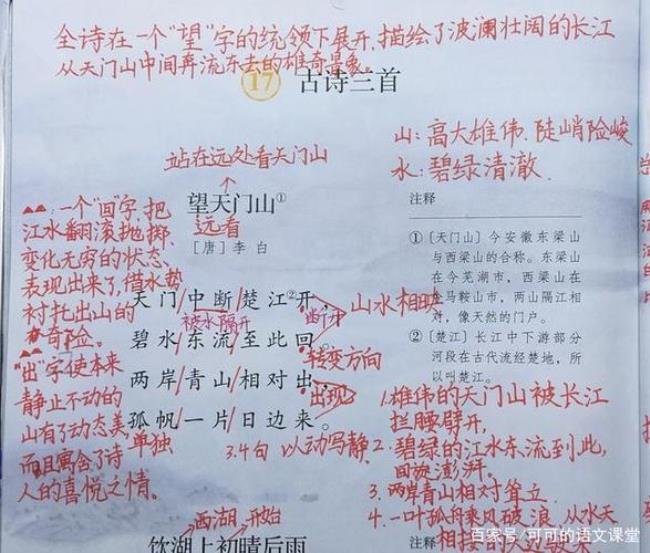 全诗在一个"望"字的统领下展开,描绘了波澜壮阔的长江
从天门山中间奔流东去的雄奇景象。
17 古诗三首
山:高大雄伟、陡峭险峻
水:碧绿清澈.
站在远处看天门山
望天门山①
远看
[唐] 李 白
注释
一个"回"字,把
江水翻滚抛掷、
变化无穷的状态、
表现出来了,借水势
衬托出山的
奇险。
"出"字使本来
静止不动的
山有了动态美
而且寓含了诗
人的喜悦之情。
天门/中断/楚江②开,
被水隔开
断开
山水相映
碧水/东流/至此回。
转变方向
两岸/青山/相对出,
出现
孤帆/一片/日边来。
单独
3.4句 以动写静
①〔天门山〕今安徽东梁山
与西梁山的合称。东梁山
在今芜湖市,西梁山在
马鞍山市,两山隔江相
对,像天然的门户。
②〔楚江〕长江中下游部分
河段在古代流经楚地,所
以叫楚江。
1.雄伟的天门山被长江
拦腰劈开,
2.碧绿的江水东流到此,
回旋澎湃。
3.两岸青山相对耸立.
4.一叶孤舟乘风破浪,从水天
相接的
西湖 开始
饮湖上初晴后雨
注释
百家号/可可的语文课堂